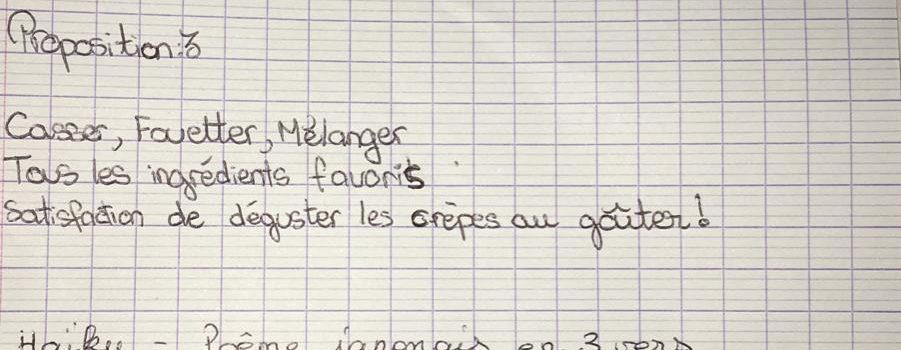 Proposition:3
Casser, Fouetter, Mélanger
Tous les ingrédients favoris
Satisfaction de déguster les crêpes au goûter!
Haïku - Poème japonais en 3 vers